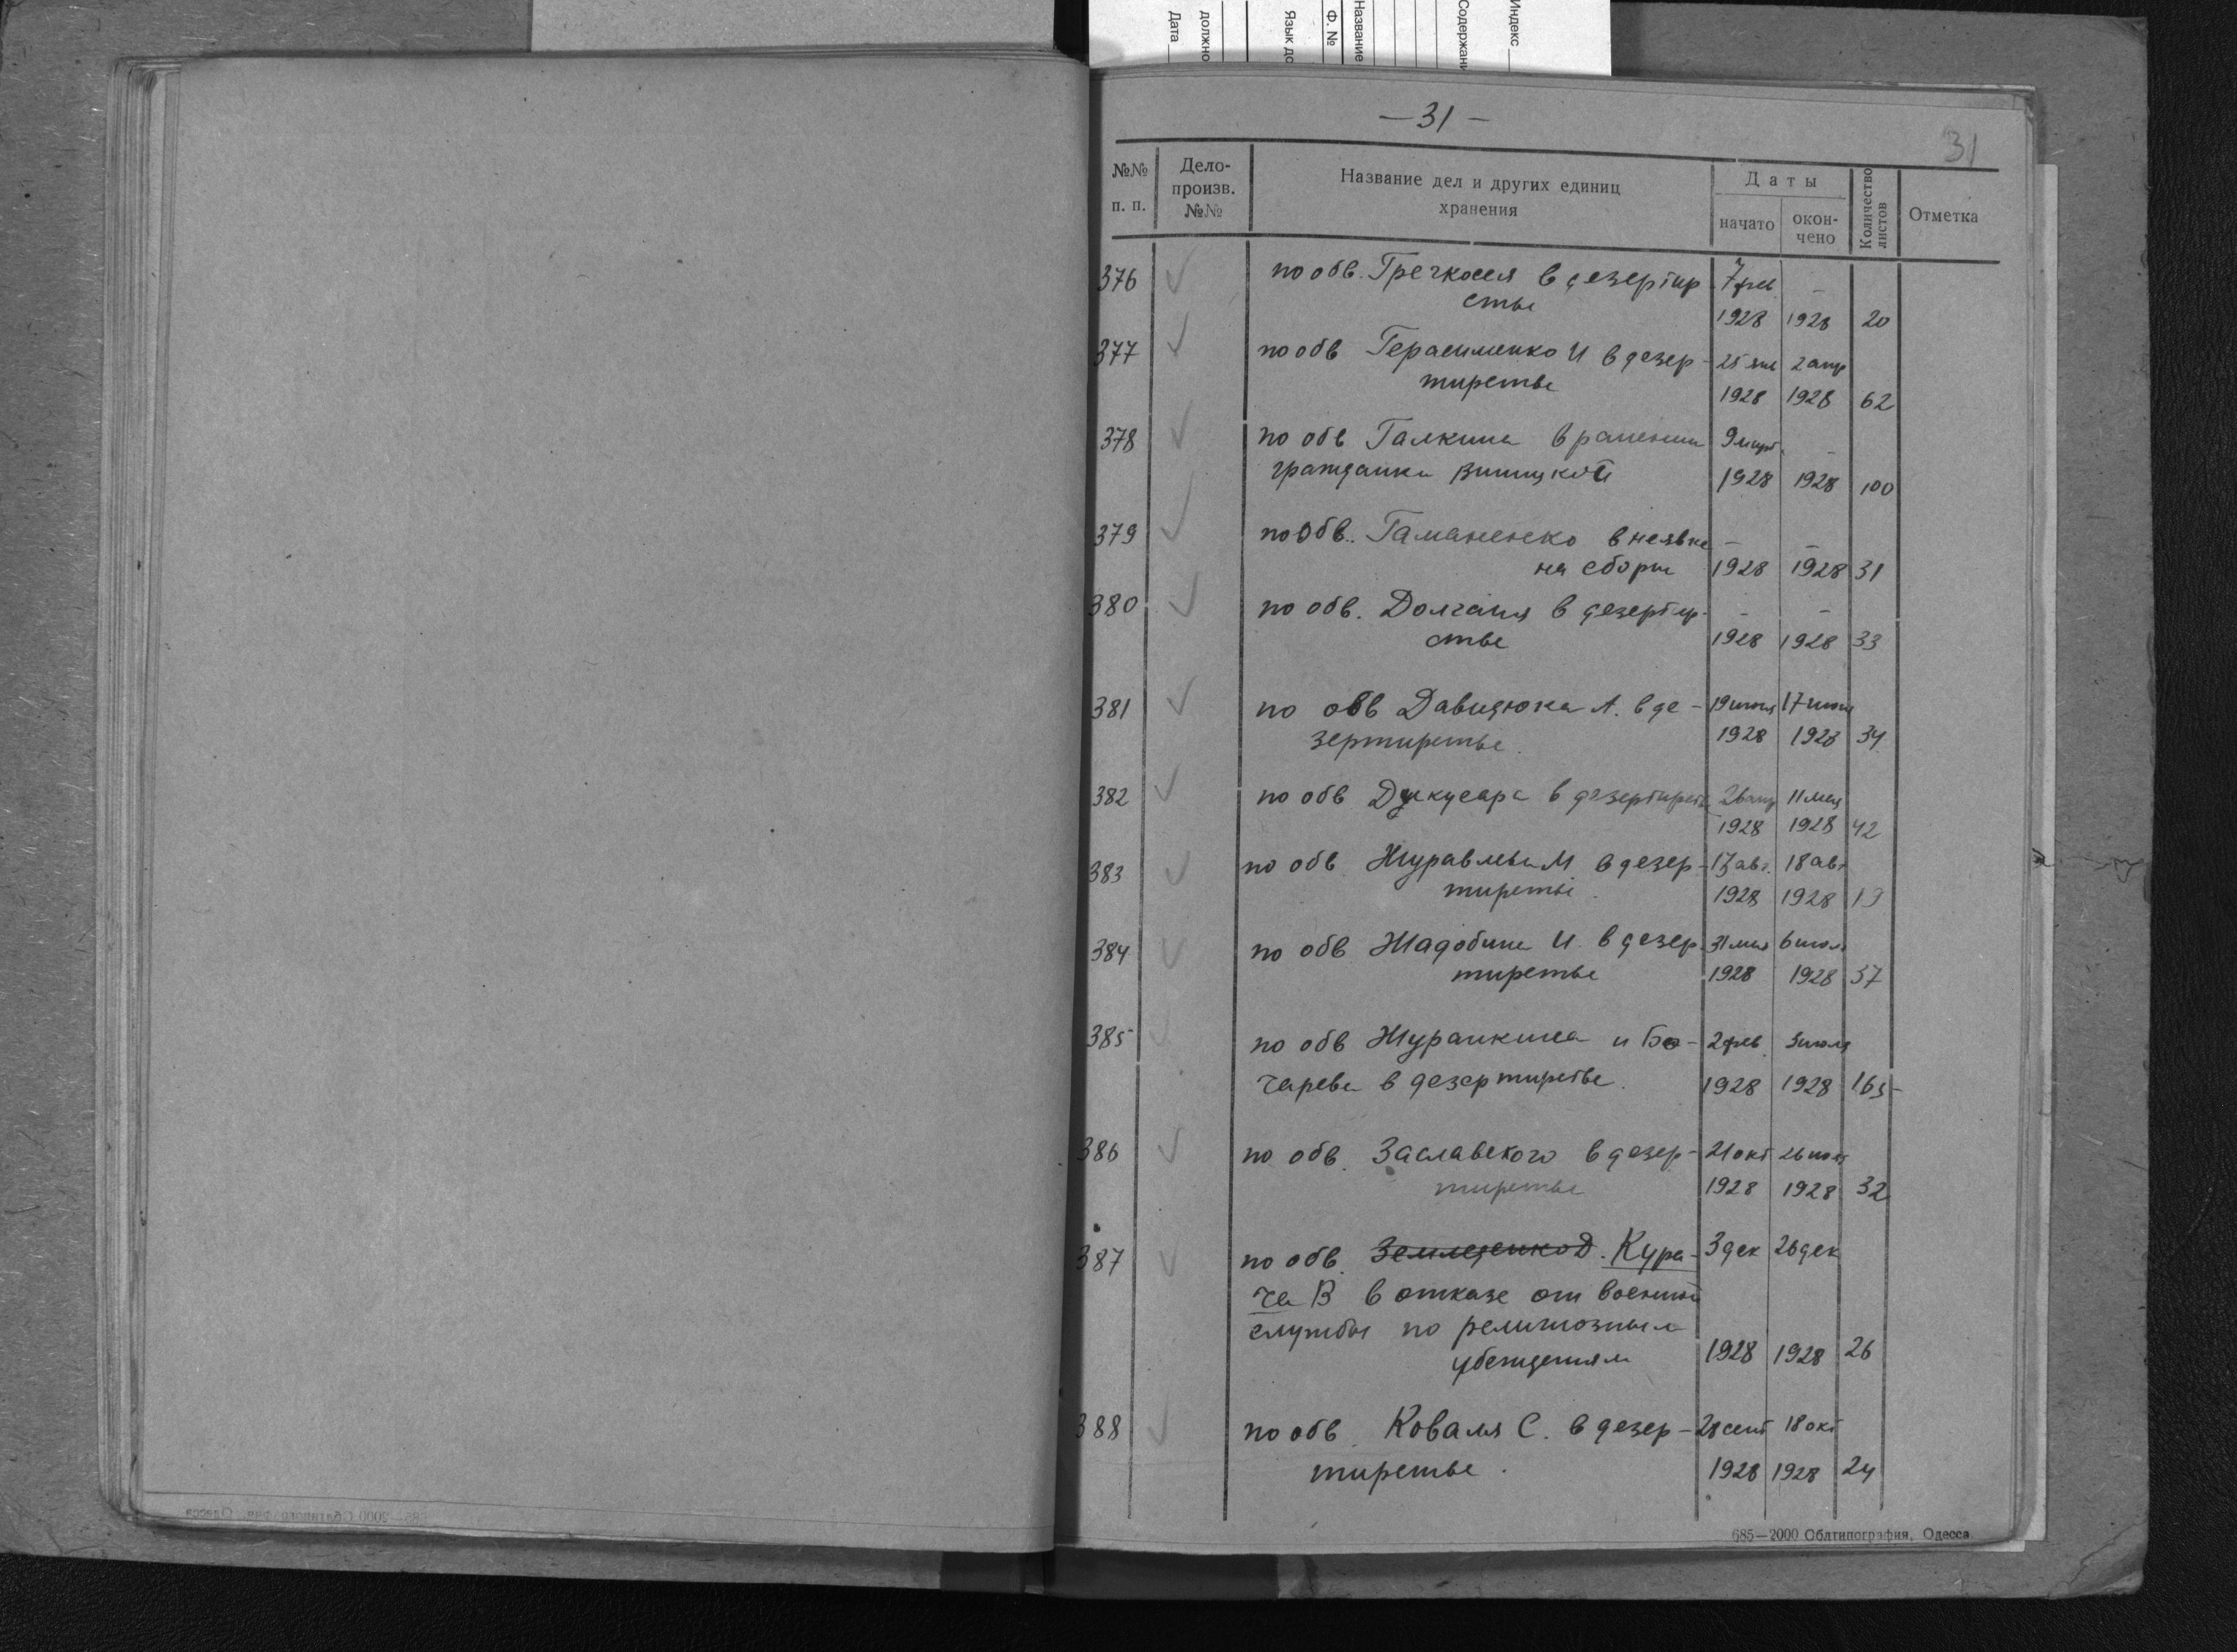 Индекс
Содержани
Название
Ф. №
Язык до
должно
Дата
— 31 —
31
№№ п. п.
Дело-произв. №№
Название дел и других единиц хранения
Даты
начато
окон-чено
Количество листов
Отметка
376 по обв. Гречкосея в дезертир 7 фев –
стве 1928 1928 20
377 по обв Герасименко И в дезер- 25 янв 2 апр
тирстве 1928 1928 62
378 по обв Галкина в ранении 9 март. –
гражданки 1928 1928 100
379 по обв. Гаманенко в неявке – –
на сборы 1928 1928 31
380 по обв. в дезертир- – –
стве 1928 1928 33
381 по обв Давидюка А. в де-
зертирстве. 1928 1928 34
382 по обв в дезертирстве 26 апр 11 мая
1928 1928 42
383 по обв Журавлева М в дезер- 18 авг
тирстве. 1928 1928
384 по обв Жадобина И. в дезер- 31 мая 6 июля
тирстве 1928 1928 37
385 по обв Журанкина и Бо- 2 фев. июля
чарева в дезертирстве. 1928 1928 165
386 по обв. Заславского в дезер- 21 окт
тирстве 1928 1928 32
387 по обв. Кура- 3 дек 26 дек
ча В в отказе от военной
службы по религиозным
убеждениям 1928 1928 26
388 по обв. Коваля С. в дезер- 28 сент 18 окт
тирстве. 1928 1928 24
685—2000 Облтипография, Одесса